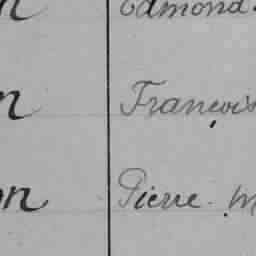 n Edmond.
n François
on Pierre. M